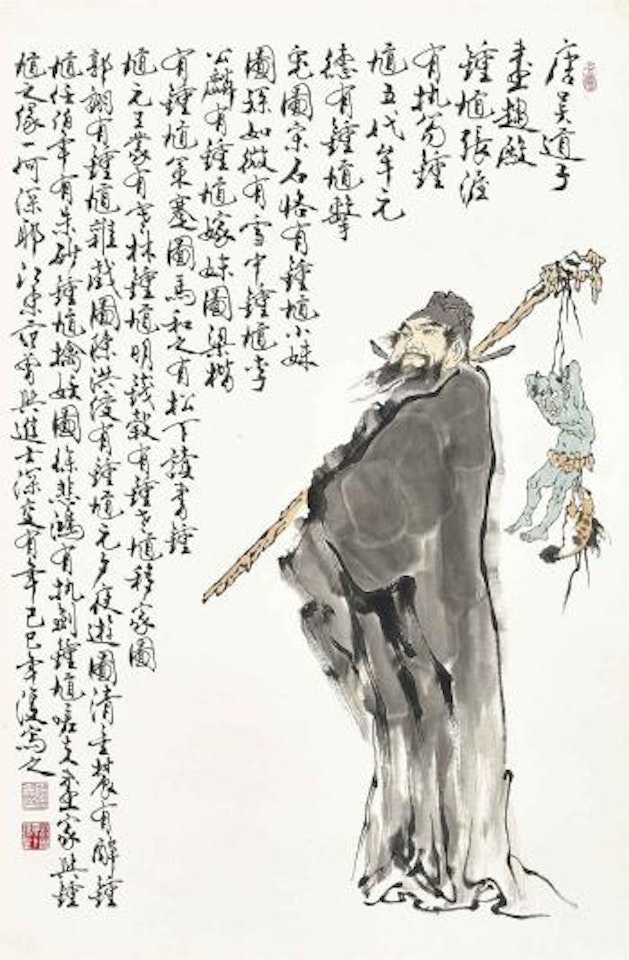 唐吴道子
畫趨殿
鍾馗張渥
有执笏鍾
馗五代牟元
德有鍾馗擊
鬼圖宋石恪有鍾馗小妹
圖孫知微有雪中鍾馗李
公麟有鍾馗嫁妹圖梁楷
有鍾馗策蹇圖馬和之有松下讀書鍾
馗元王蒙有寒林鍾馗明錢穀有鍾老馗移家圖
郭詡有鍾馗雜戲圖陳洪綬有鍾馗元夕夜遊圖清金農有醉鍾
馗任伯年有朱砂鍾馗擒妖圖徐悲鴻有执劍鍾馗嗟夫畫家與鍾
馗之缘一何深耶江東范曾與進士深交有年己巳年漫寫之